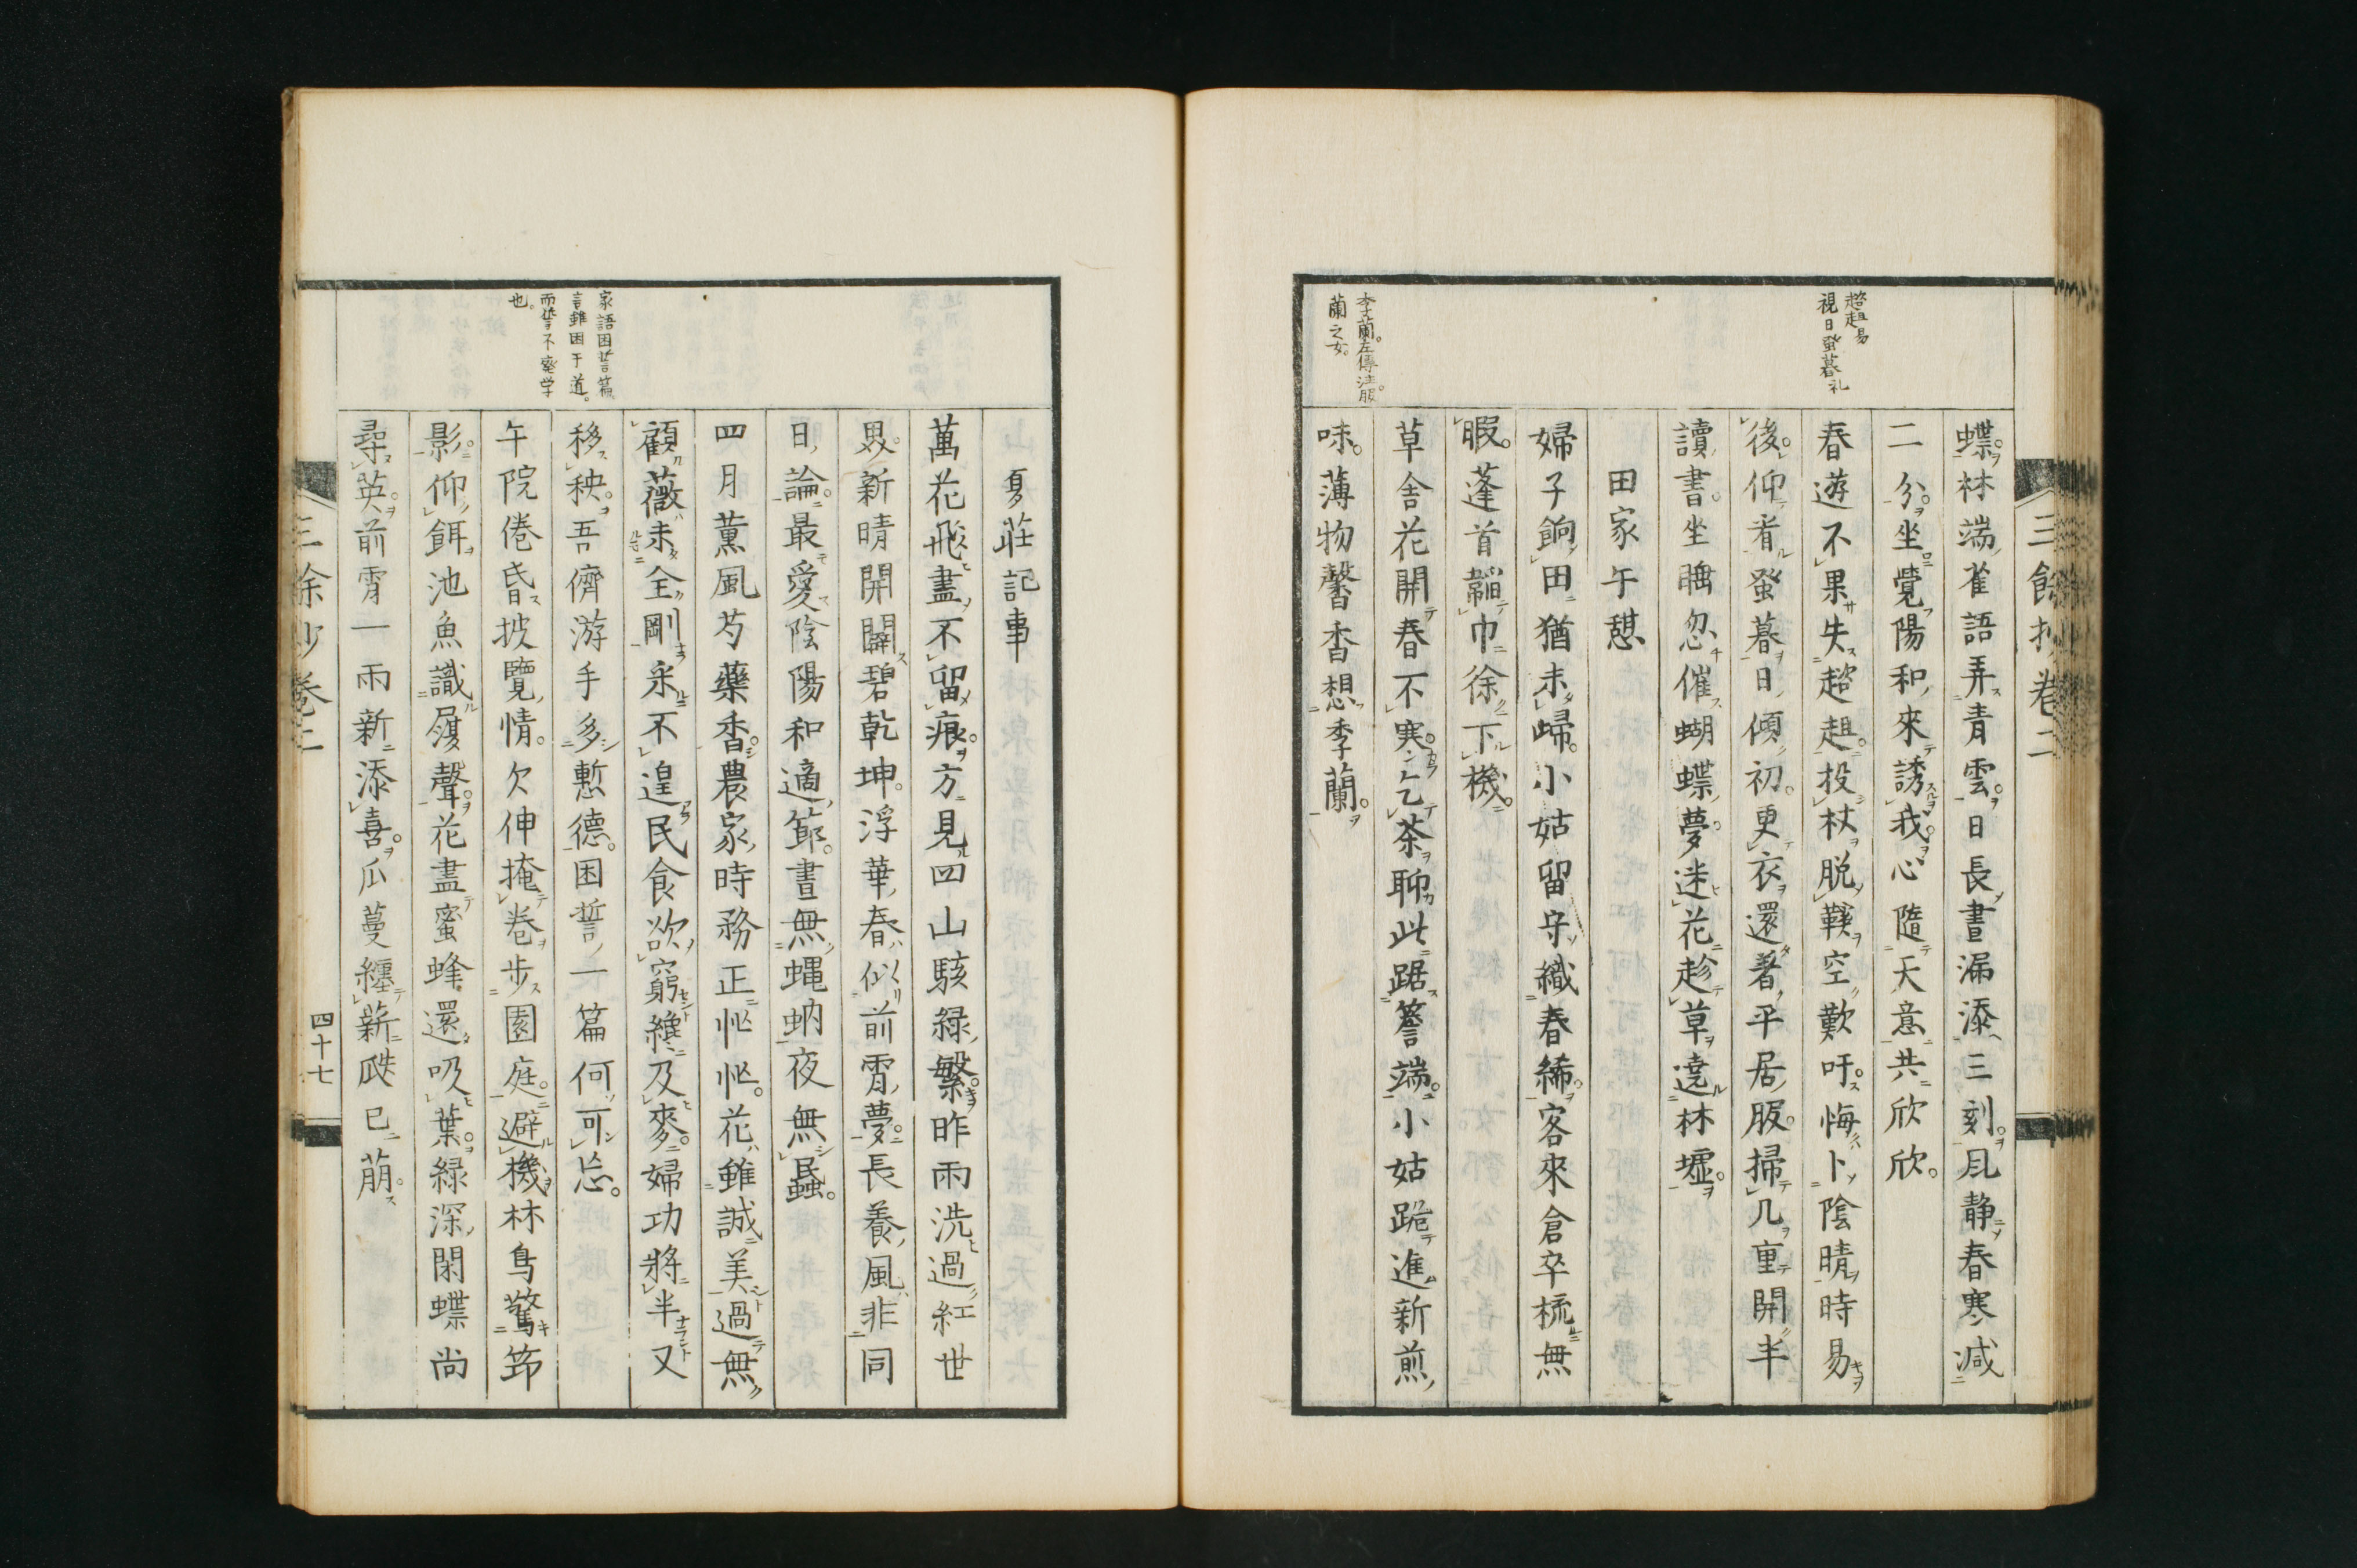 三餘抄卷二
趦趄易
視日蚤暮礼
李蘭左傳注服
蘭之女。
蝶。林端雀語弄青雲。日長晝漏添三刻。風静春寒減
二分。坐覺陽和來誘我。心隨天意共欣欣。
春遊不果失趦趄。投杖脱鞵空歎吁。悔卜陰晴時易
後。仰看蚤暮日傾初。更衣還著平居服。掃几重開半
讀書。坐睡忽催蝴蝶夢。迷花趁草遶林墟。
田家午憇
婦子餉田猶未歸。小姑留守織春絺。客來倉卒梳無
暇。蓬首韜巾徐下機。
草舎花開春不寒。乞茶聊此踞簷端。小姑跪進新煎
味。薄物馨香想季蘭。
家語困誓篇
言雖困于道。
而學不廢学
也。
夏莊記事
萬花飛盡不留痕。方見四山駭緑繁。昨雨洗過紅世
界。新晴開闢碧乾坤。浮華春似前霄夢。長養風非同
日論。最愛陰陽和適節。晝無蝿蚋夜無蟁。
四月薫風芍藥香。農家時務正忙忙。花雖誠美過無
顧。薇未全剛采不遑。民食欲窮纔及麥。婦功將半又
移秧。吾儕游手多慙德。困誓一篇何可忘。
午院倦昏披覽情。欠伸掩卷步園庭。避機林鳥驚笻
影。仰餌池魚識履聲。花盡蜜蜂還吸葉。緑深閑蝶尚
尋英。前霄一雨新添喜。瓜蔓纏薪瓞已萠。
三餘抄卷二
四十七